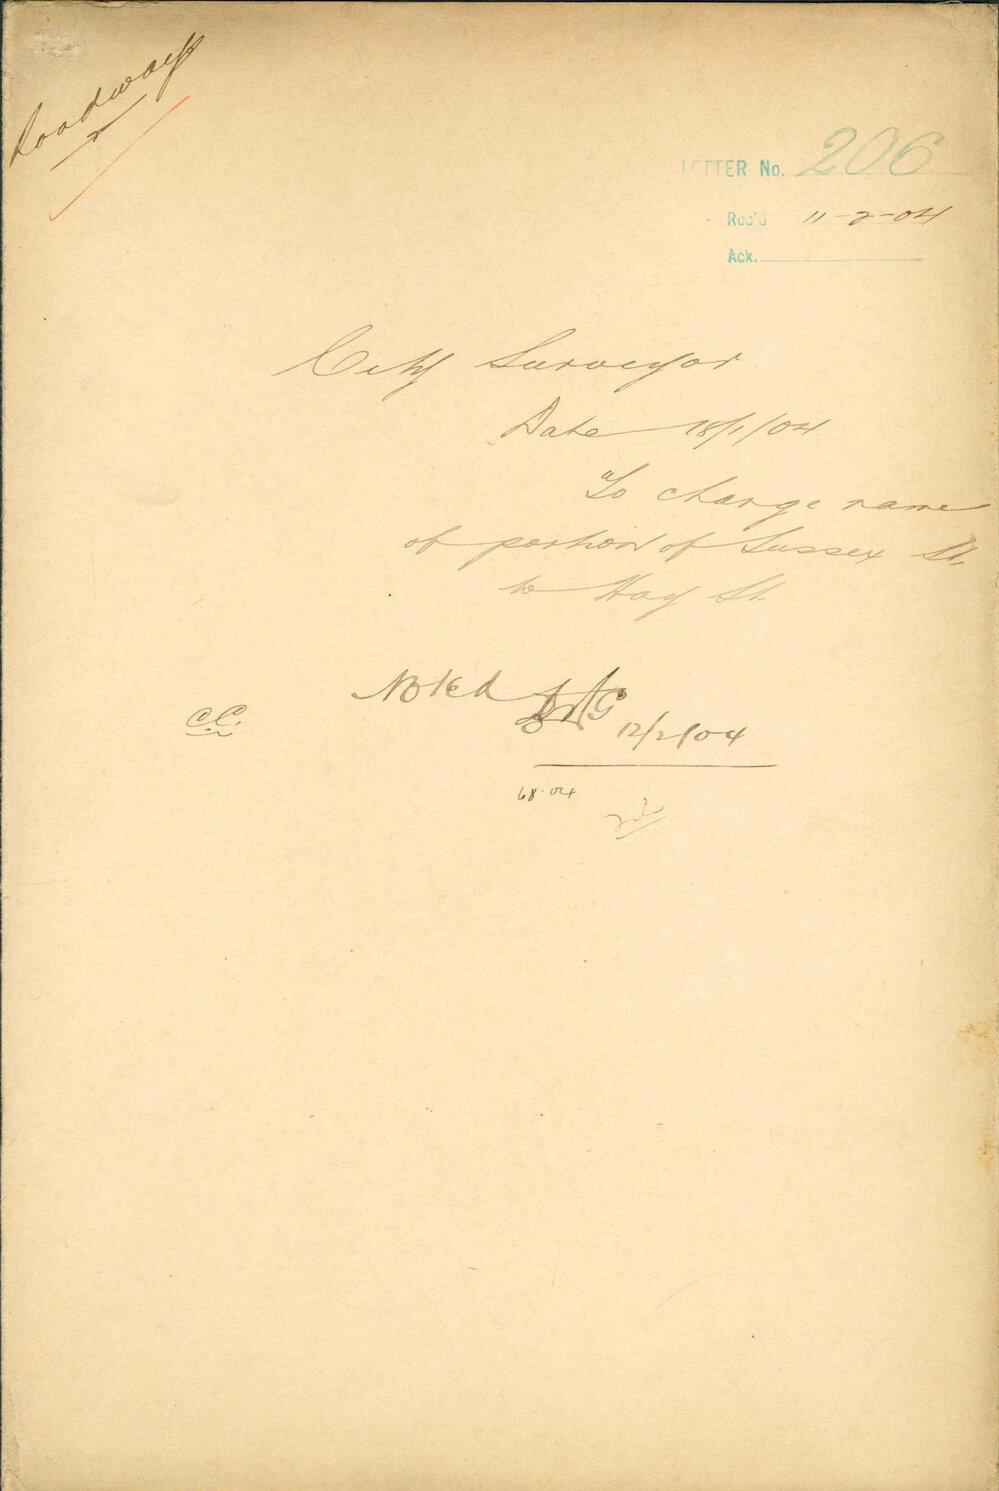 Roadways
LETTER No. 206
Rec'd 11-2-04
Ack.
City Surveyor
Date 18/1/04
"To change name
of portion of Sussex St.
to Hay St.
Noted
12/2/04
C.C.
68.04